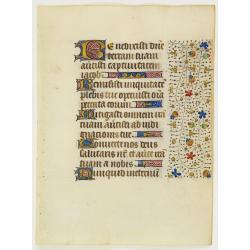 Benedixisti dñe
terram tuam
auertisti captiuitatem
iacob.
Remisisti iniquitatē
plebis tue operuisti oīa
peccata eorum.
Mitigasti omnem irā
tuam auertisti ab ira indi
gnacionis tue.
Conuerte nos deus
salutaris nr̄ et auerte irā
tuam a nobis.
Numquid ineternū